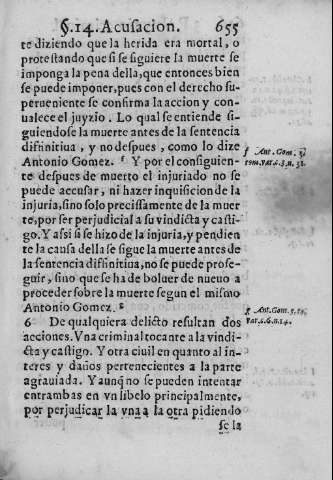 §.14. Acusacion. 655
te diziendo que la herida era mortal, o
protestando que si se siguiere la muerte se
imponga la pena della, que entonces bien
se puede imponer, pues con el derecho su-
perueniente se confirma la accion y con-
ualece el juyzio. Lo qual se entiende si-
guiendose la muerte antes de la sentencia
difinitiua, y no despues, como lo dize
Antonio Gomez. f Y por el consiguien-
te despues de muerto el injuriado no se
puede accusar, ni hazer inquisicion de la
injuria, sino solo precissamente de la muer
te, por ser perjudicial a su vindicta y casti-
go. Y assi si se hizo de la injuria, y pendien
te la causa della se sigue la muerte antes de
la sentencia difinitiua, no se puede prose-
guir, sino que se ha de boluer de nueuo a
proceder sobre la muerte segun el mismo
Antonio Gomez. g
6 De qualquiera delicto resultan dos
acciones. Vna criminal tocante a la vindi-
cta y castigo. Y otra ciuil en quanto al in-
teres y daños pertenecientes a la parte
agrauiada. Y aunq̃ no se pueden intentar
entrambas en vn libelo principalmente,
por perjudicar la vna a la otra pidiendo
se la
f Ant. Gom. 3.
tom. var. c. 3. n. 31.
g Ant. Gom.
var. c.